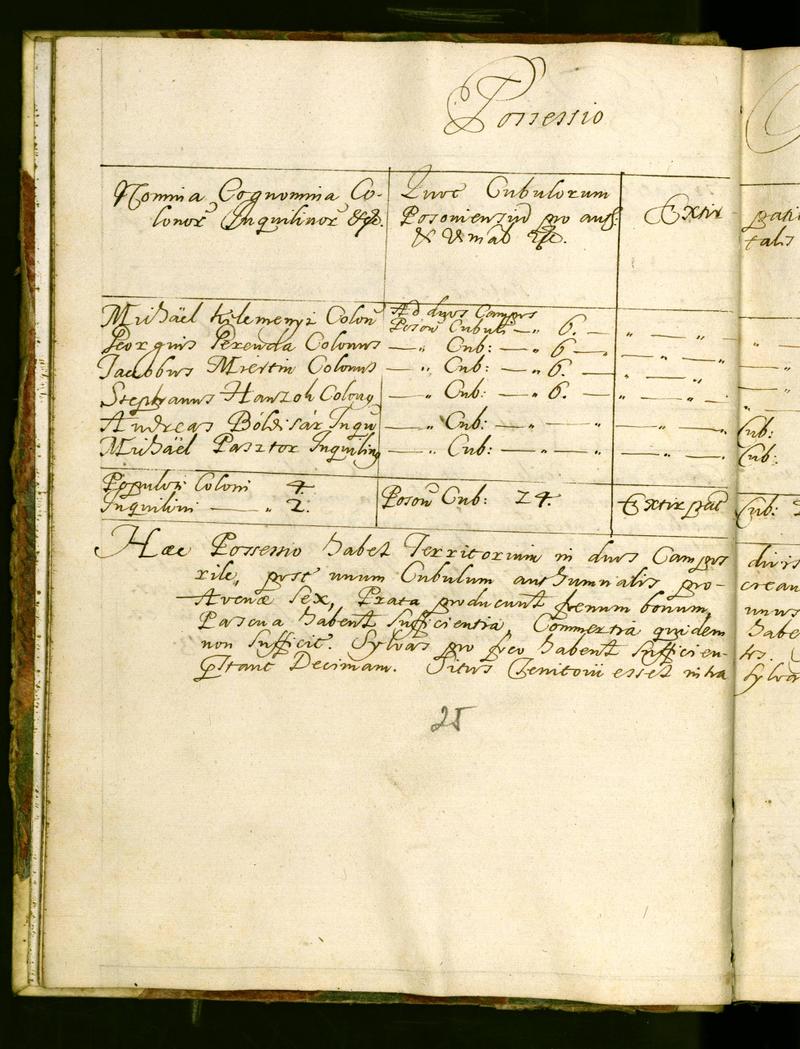 Possessio
Nomina Cognomina Co-
lonor Inquilinor &
Quot Cubulorum
Posoniensiū pro aut:
& Vernal
Extir
pati
talis
Michäel Kelemenyi Colon
Ad duos Campos
Posoñ Cubuli — „ 6. —
Georgius Perenda Colonus — „ Cub: — „ 6 — „
Jacobus Miertin Colonus — „ Cub: — „ 6. —
Stephanus Hanzoh Colonꝰ — „ Cub: — „ 6. —
Andreas Bóldisár Inqu — „ Cub: — „ — „ Cub:
Michäel Pasztor Inquilinꝰ — „ Cub: — „ — „ Cub:
Populosi Coloni 4.
Inquilini — „ 2.
Posoñ Cub: 24.
Extirpat Cub:
Hæc Possessio habet Territorium in duos Campos divis
rile, post unum Cubulum authumnalis pro- crean
Avenæ Sex, Prata producunt fenum bonum, unus
Pascua habent sufficientia Commertia quidem habe
non sufficit. Sylvas pro foco habent sufficien- tes.
pstant Decimam. Situs Territorii esset intra Sylva
25